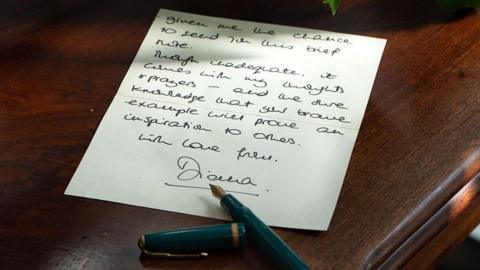 given me the chance
to send you this brief
note.
Though inadequate, it
comes with my thoughts
& prayers - and the sure
knowledge that your brave
example will prove an
inspiration to others.
with love from,
Diana.